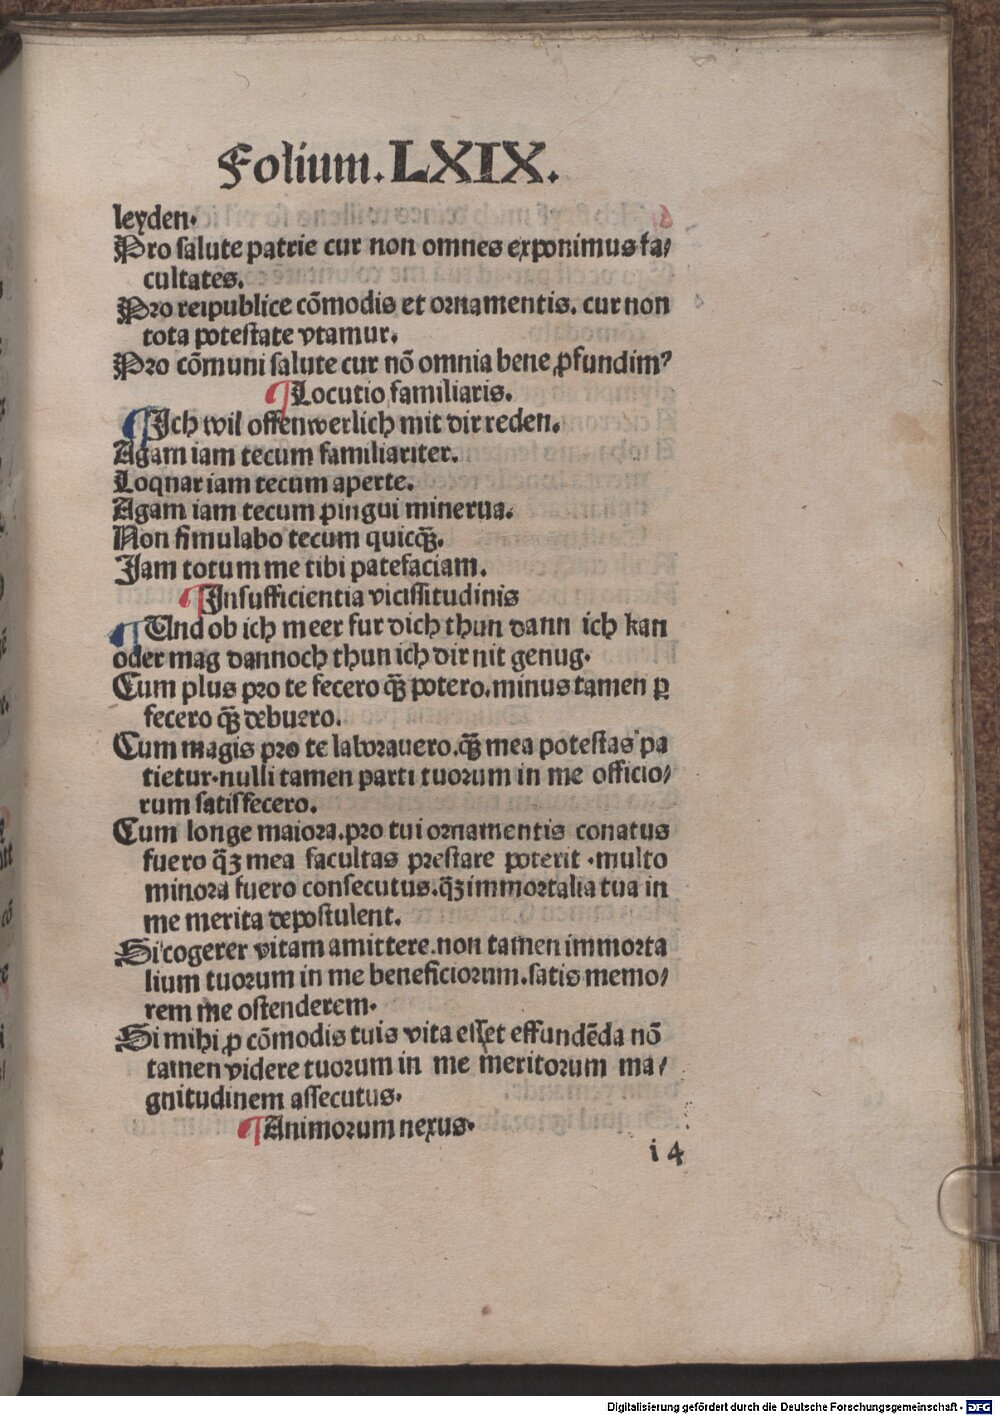 Folium. LXIX.
leyden.
Pro salute patrie cur non omnes exponimus fa/
cultates.
Pro reipublice cōmodis et ornamentis. cur non
tota potestate vtamur.
Pro cōmuni salute cur nō omnia bene ꝓfundimꝰ
¶Locutio familiaris.
¶Ich wil offenwerlich mit dir reden.
Agam iam tecum familiariter.
Loqnar iam tecum aperte.
Agam iam tecum pingui minerua.
Non simulabo tecum quicqꝫ̄.
Jam totum me tibi patefaciam.
¶Insufficientia vicissitudinis
¶Und ob ich meer fur dich thun dann ich kan
oder mag dannoch thun ich dir nit genug.
Cum plus pro te fecero qꝫ̄ potero. minus tamen ꝑ
fecero qꝫ̄ debuero.
Cum magis pro te laborauero. qꝫ̄ mea potestas pa
tietur. nulli tamen parti tuorum in me officio/
rum satisfecero.
Cum longe maiora. pro tui ornamentis conatus
fuero qꝫ̄ mea facultas prestare poterit. multo
minora fuero consecutus. qꝫ̄ immortalia tua in
me merita depostulent.
Si cogerer vitam amittere. non tamen immorta
lium tuorum in me beneficiorum. satis memo/
rem me ostenderem.
Si mihi ꝓ cōmodis tuis vita esset effundēda nō
tamen videre tuorum in me meritorum ma/
gnitudinem assecutus.
¶Animorum nexus.
i 4
Digitalisierung gefördert durch die Deutsche Forschungsgemeinschaft - DFG